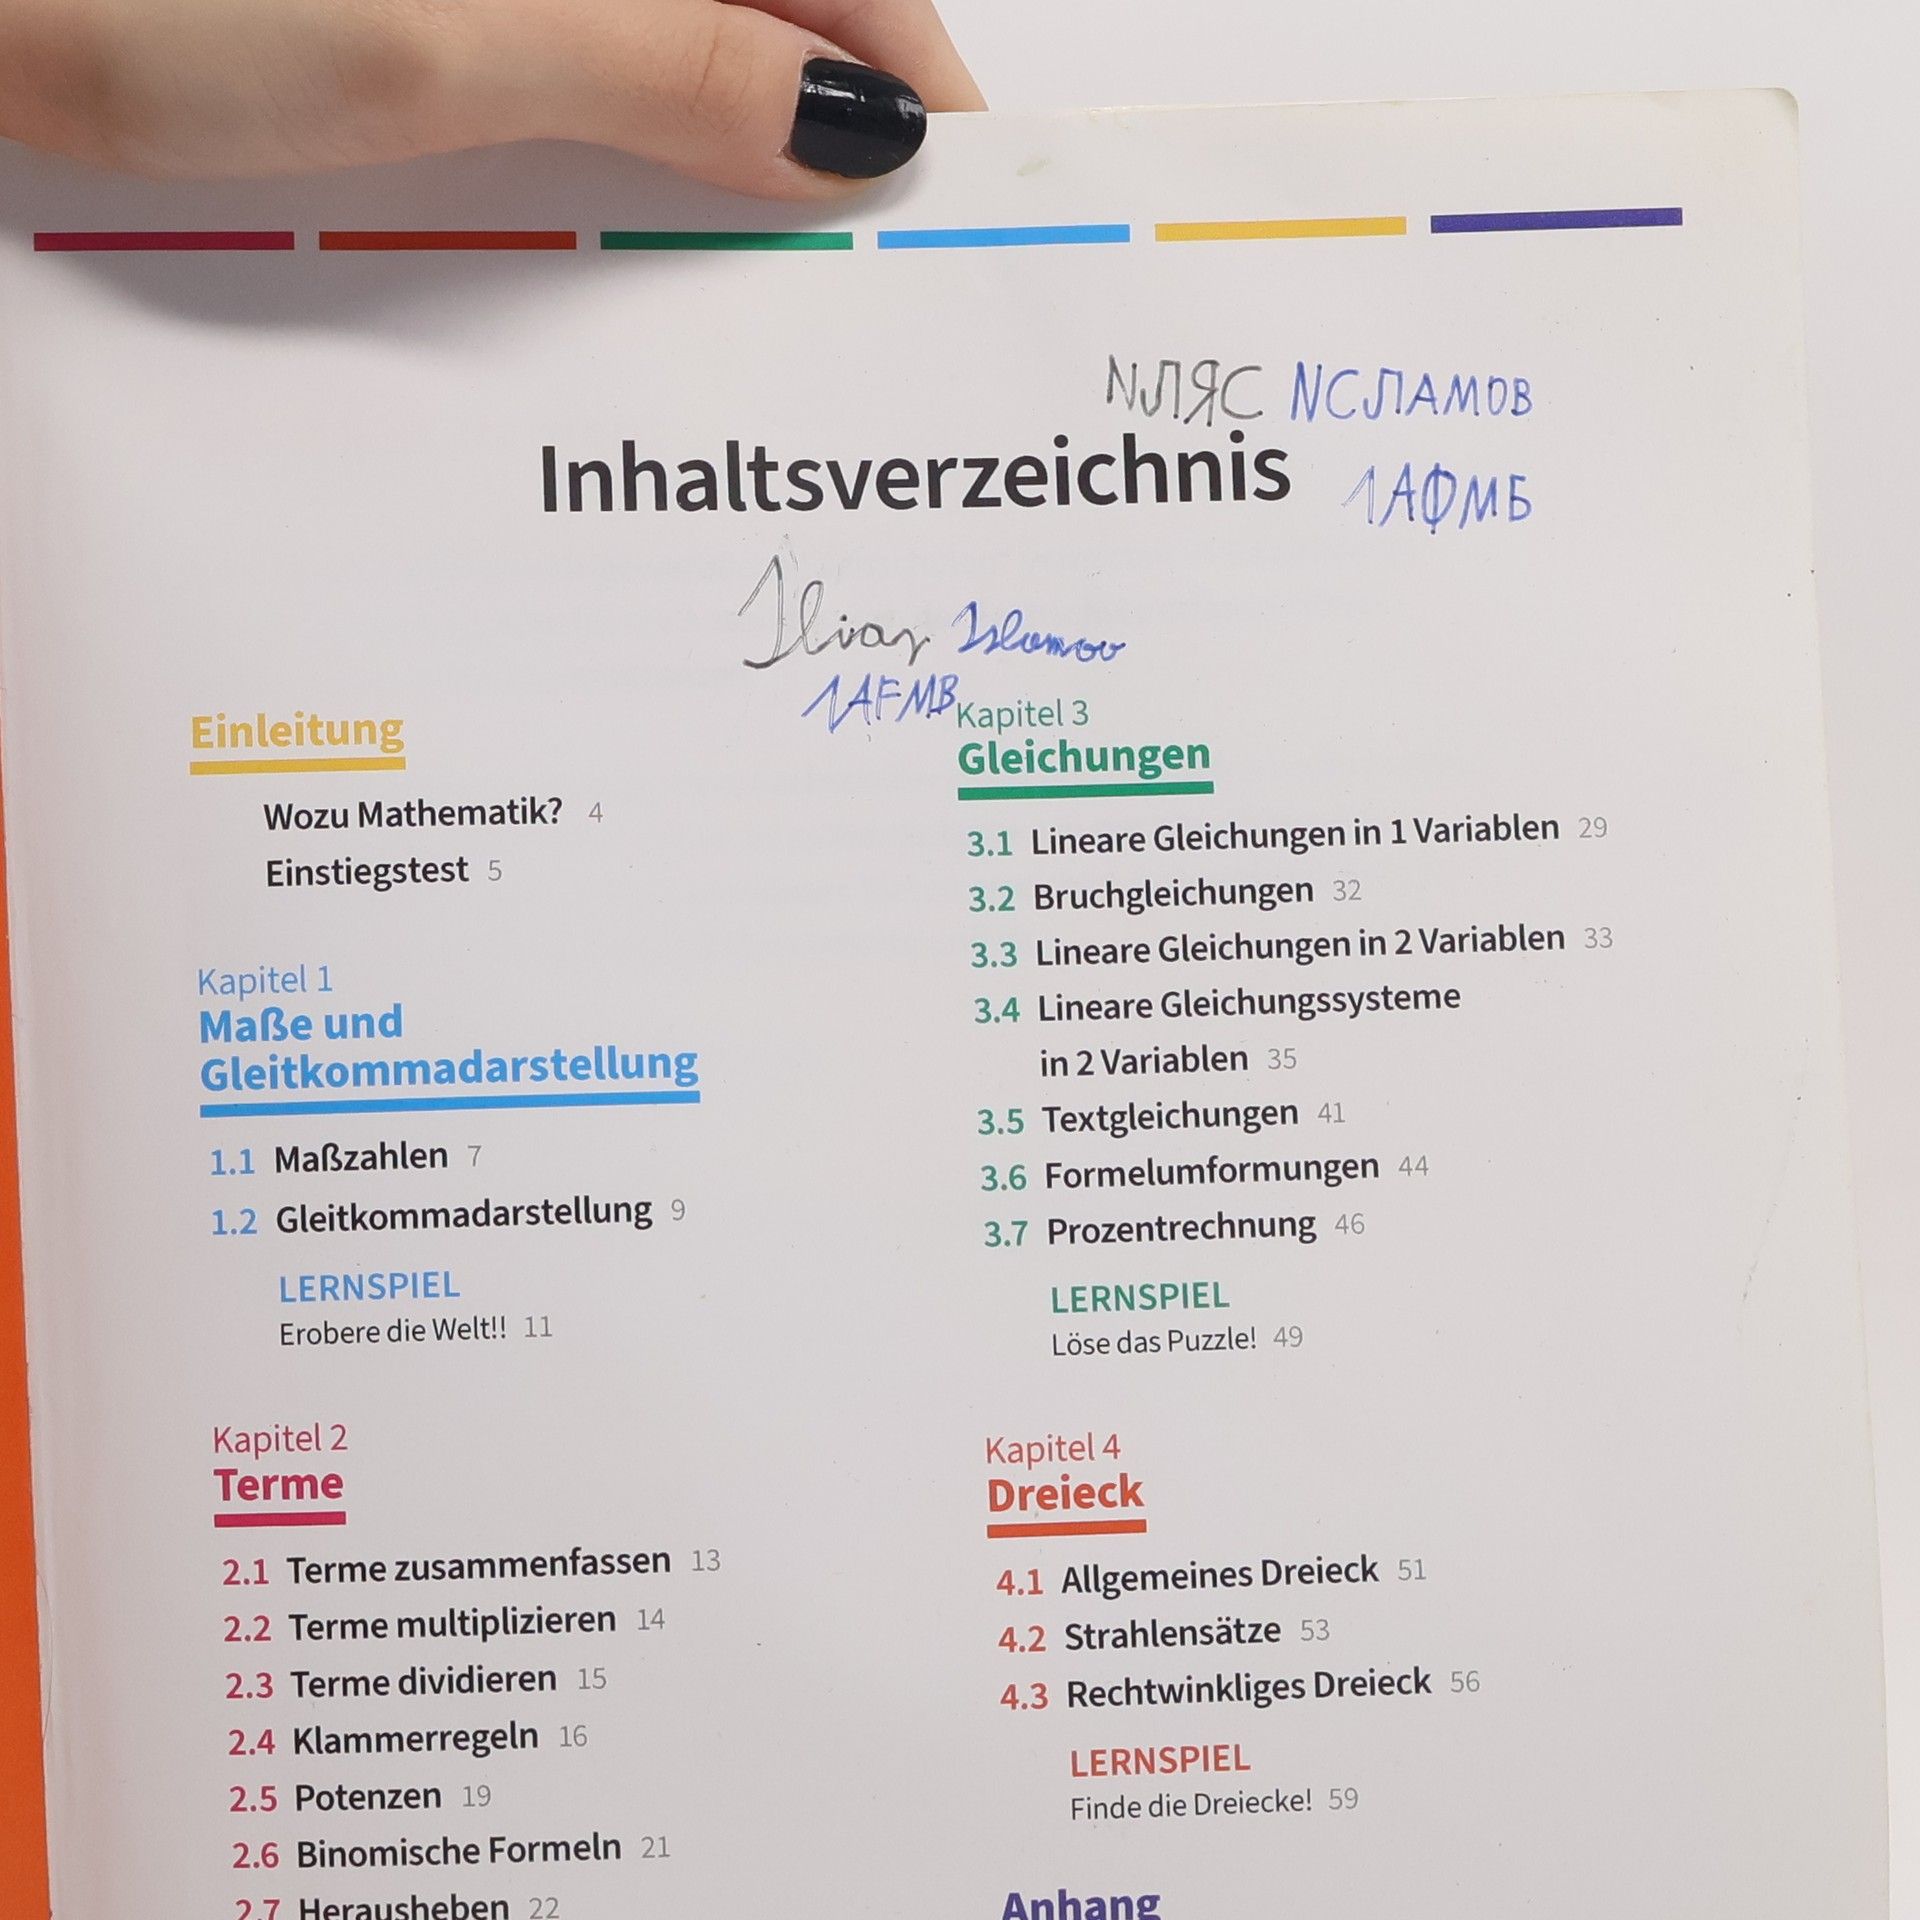 ИЛЯС ИСЛАМОВ
Inhaltsverzeichnis
1АФМБ
Ilias Islamov
1AFMB
Einleitung
Wozu Mathematik? 4
Einstiegstest 5
Kapitel 1
Maße und
Gleitkommadarstellung
1.1 Maßzahlen 7
1.2 Gleitkommadarstellung 9
LERNSPIEL
Erobere die Welt!! 11
Kapitel 2
Terme
2.1 Terme zusammenfassen 13
2.2 Terme multiplizieren 14
2.3 Terme dividieren 15
2.4 Klammerregeln 16
2.5 Potenzen 19
2.6 Binomische Formeln 21
2.7 Herausheben 22
Kapitel 3
Gleichungen
3.1 Lineare Gleichungen in 1 Variablen 29
3.2 Bruchgleichungen 32
3.3 Lineare Gleichungen in 2 Variablen 33
3.4 Lineare Gleichungssysteme
in 2 Variablen 35
3.5 Textgleichungen 41
3.6 Formelumformungen 44
3.7 Prozentrechnung 46
LERNSPIEL
Löse das Puzzle! 49
Kapitel 4
Dreieck
4.1 Allgemeines Dreieck 51
4.2 Strahlensätze 53
4.3 Rechtwinkliges Dreieck 56
LERNSPIEL
Finde die Dreiecke! 59
Anhang